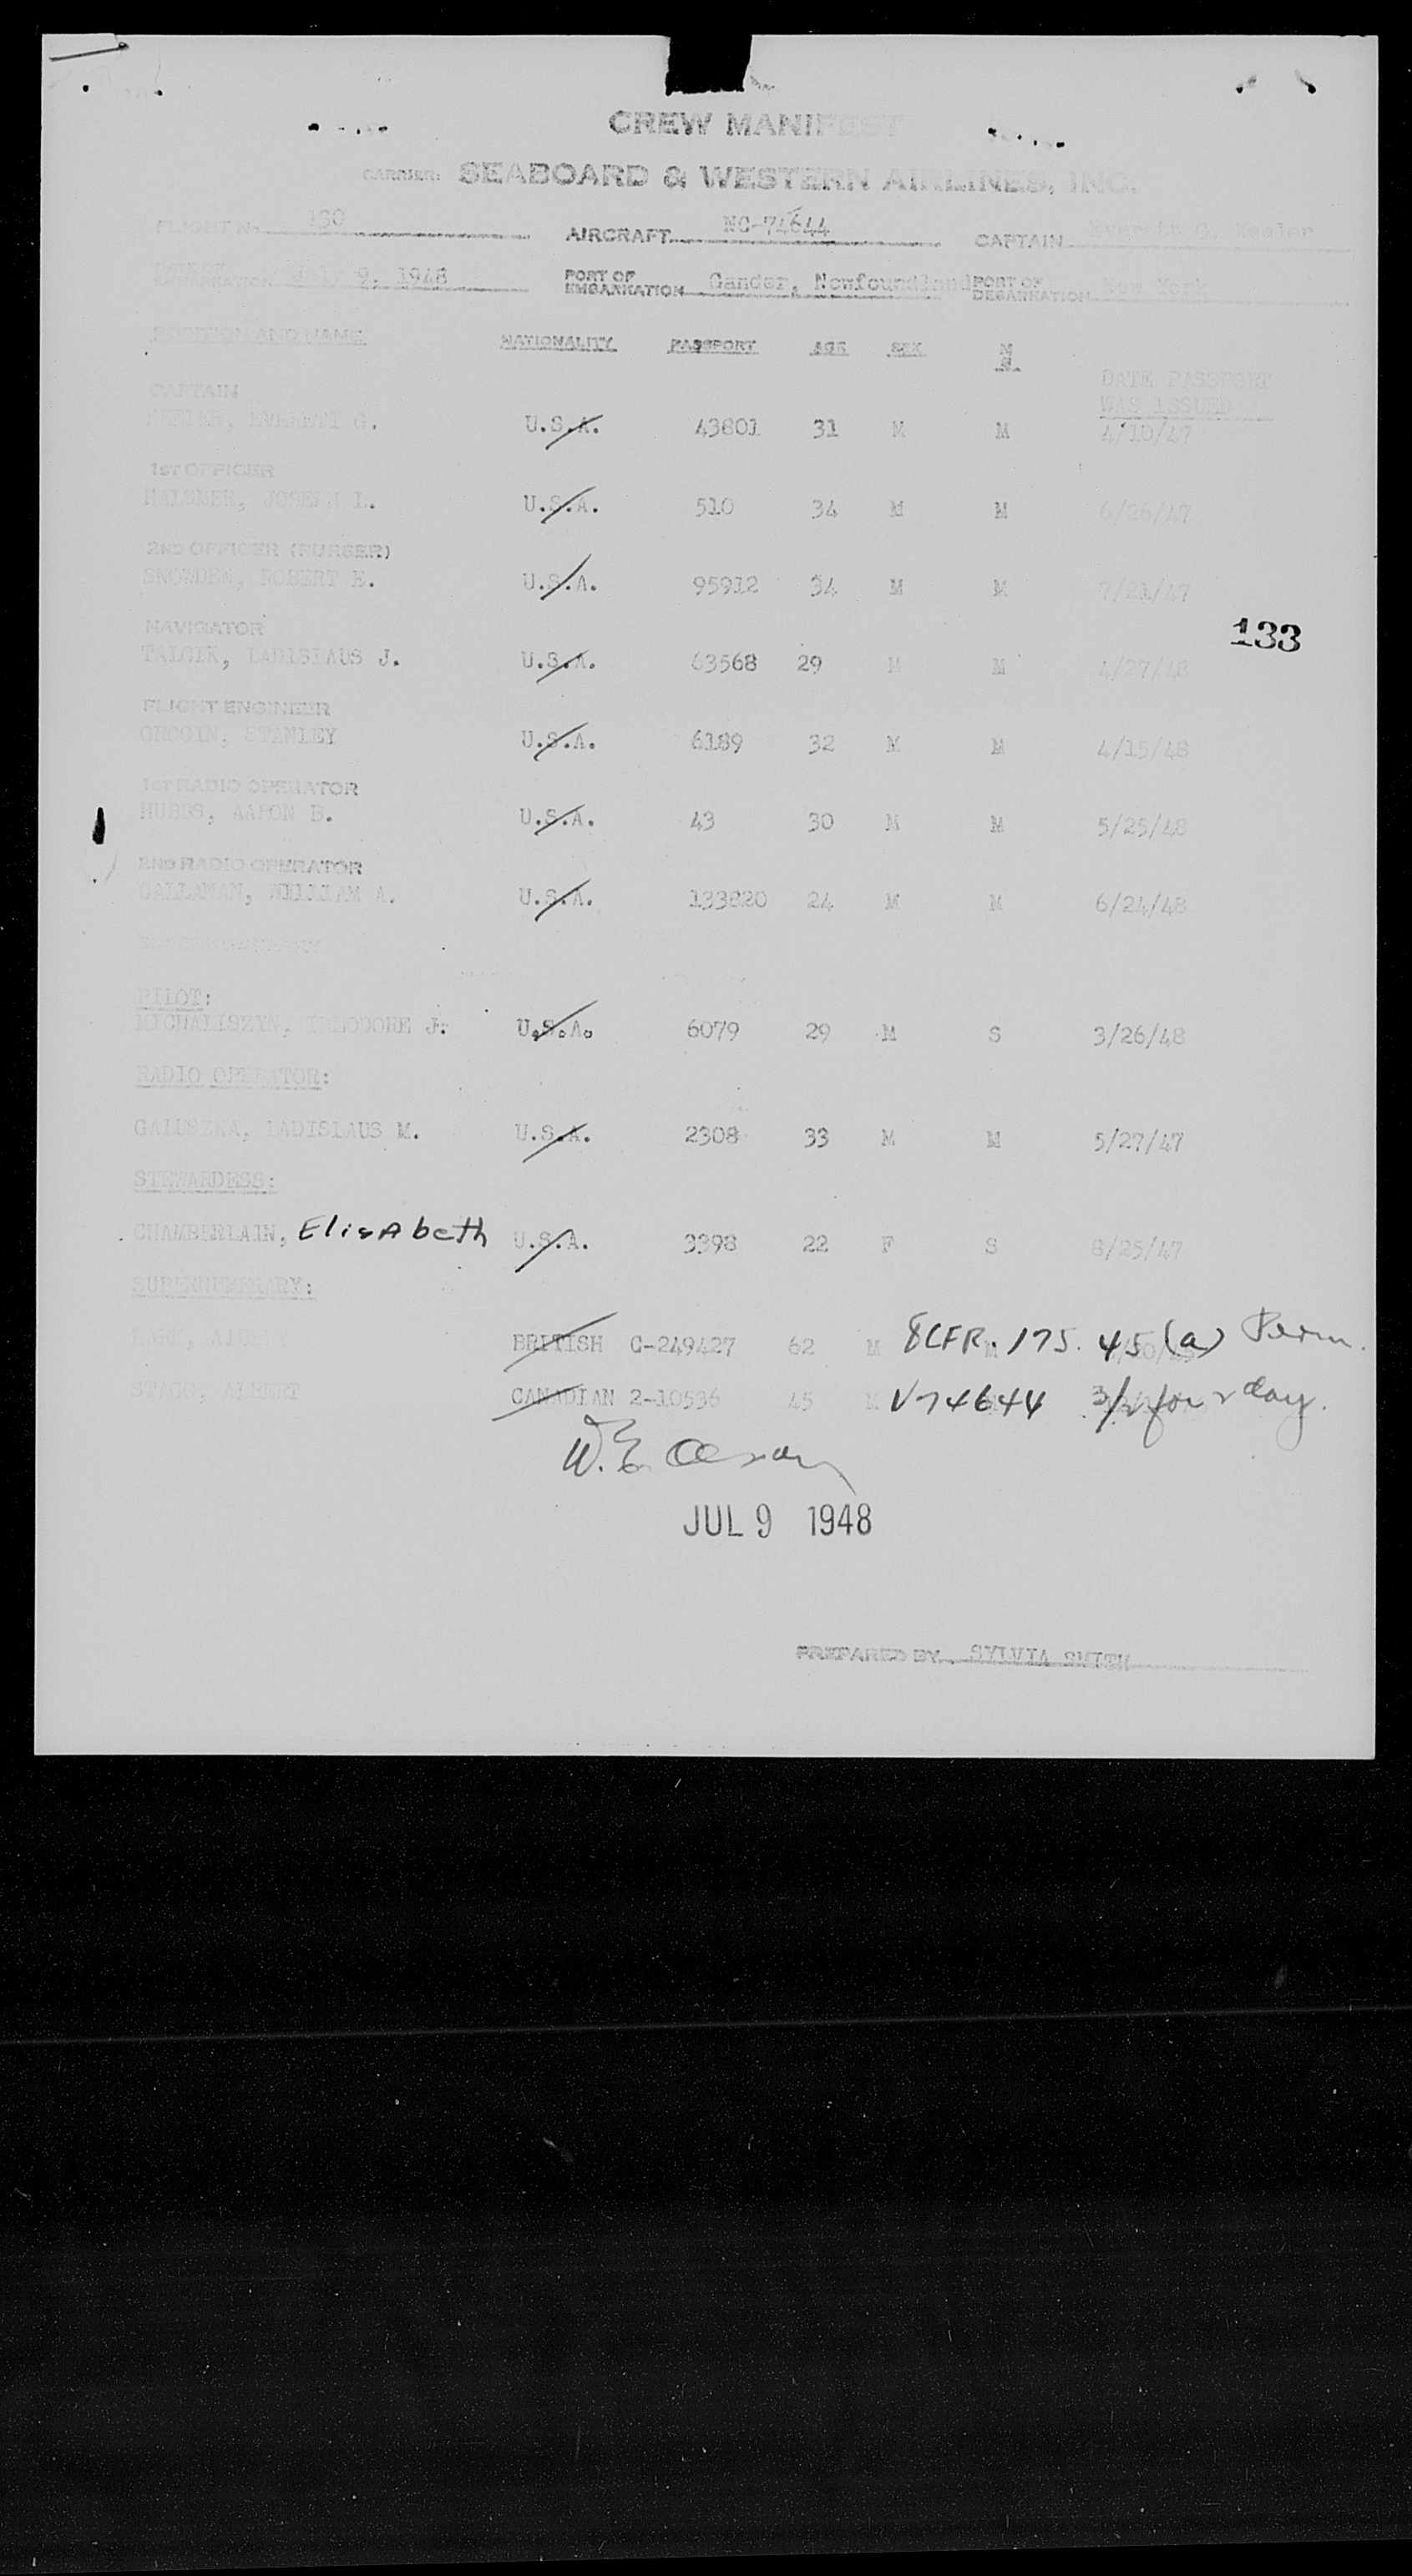 CREW MANIFEST
CARRIER: SEABOARD & WESTERN AIRLINES, INC.
FLIGHT No. 130 AIRCRAFT NC-74644 CAPTAIN Everett G. Keeler
DATE OF EMBARKATION July 9, 1948 PORT OF EMBARKATION Gander, Newfoundland PORT OF DEBARKATION New York
POSITION AND NAME NATIONALITY PASSPORT AGE SEX M S DATE PASSPORT WAS ISSUED
CAPTAIN
KEELER, EVERETT G. U.S.A. 43801 31 M M 4/10/47
1ST OFFICER
JOSEPH L. U.S.A. 510 34 M M 6/26/47
2ND OFFICER (PURSER)
SNOWDEN, ROBERT E. U.S.A. 95912 34 M M 7/21/47
133
NAVIGATOR
TALCIK, LADISLAUS J. U.S.A. 63568 29 M M 4/27/48
FLIGHT ENGINEER
STANLEY U.S.A. 6189 32 M M 4/15/48
1ST RADIO OPERATOR
HUBBS, AARON B. U.S.A. 43 30 M M 5/25/48
2ND RADIO OPERATOR
CALLAHAN, WILLIAM A. U.S.A. 133820 24 M M 6/24/48
PILOT:
MICHALISZYN, THEODORE J. U.S.A. 6079 29 M S 3/26/48
RADIO OPERATOR:
GALUSZKA, LADISLAUS M. U.S.A. 2308 33 M M 5/27/47
STEWARDESS:
CHAMBERLAIN, ElisAbeth U.S.A. 3398 22 F S 8/25/47
SUPERNUMERARY:
BRITISH C-249427 62 M 8CFR. 175. 45 (a) Perm.
STAGG, ALBERT CANADIAN 2-10536 45 M V74644 3/2 for 2 day.
JUL 9 1948
PREPARED BY SYLVIA SMITH